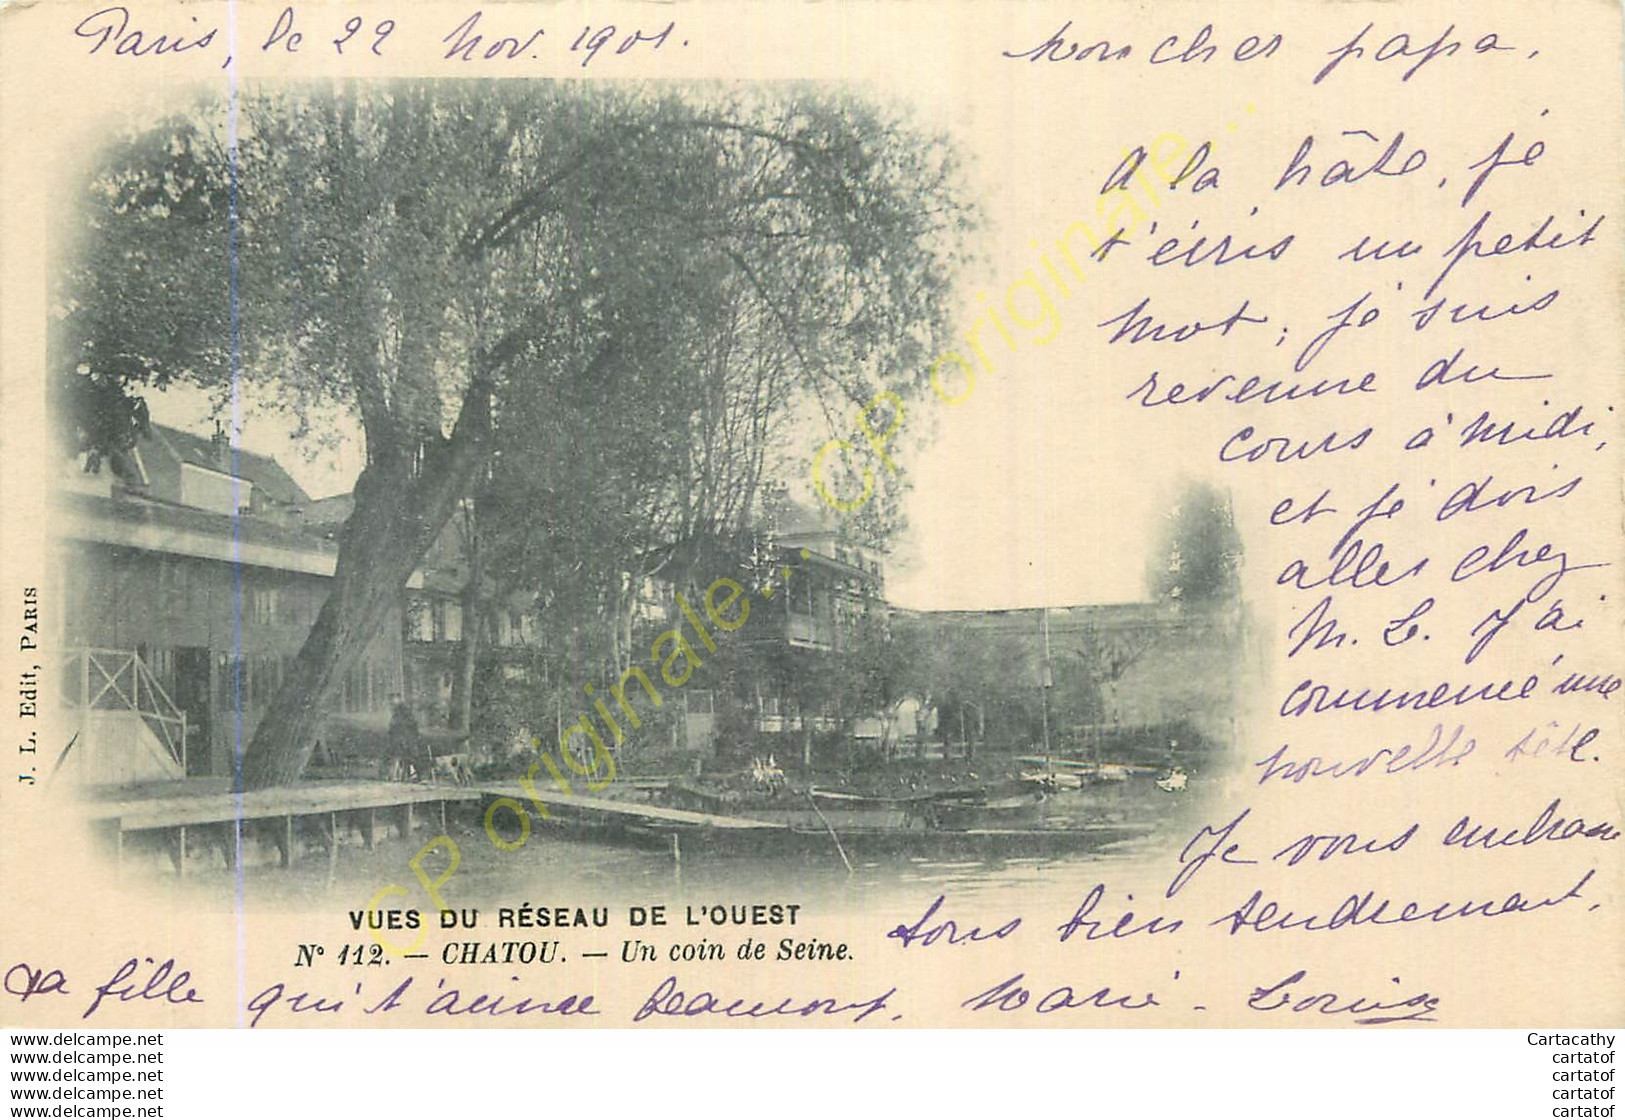 Paris, le 22 Nov. 1901.
Mon cher papa,
A la hâte, je
t'écris un petit
mot ; je suis
revenue du
cours à midi,
et je dois
aller chez
M. L. J'ai
commencé une
nouvelle tête.
Je vous embrasse
tous bien tendrement.
Ta fille qui t'aime beaucoup. Marie-Louise
J. L. Edit, PARIS
VUES DU RÉSEAU DE L'OUEST
N° 112. — CHATOU. — Un coin de Seine.
CP originale...
CP originale...
www.delcampe.net
www.delcampe.net
www.delcampe.net
www.delcampe.net
www.delcampe.net
Cartacathy
cartatof
cartatof
cartatof
cartatof